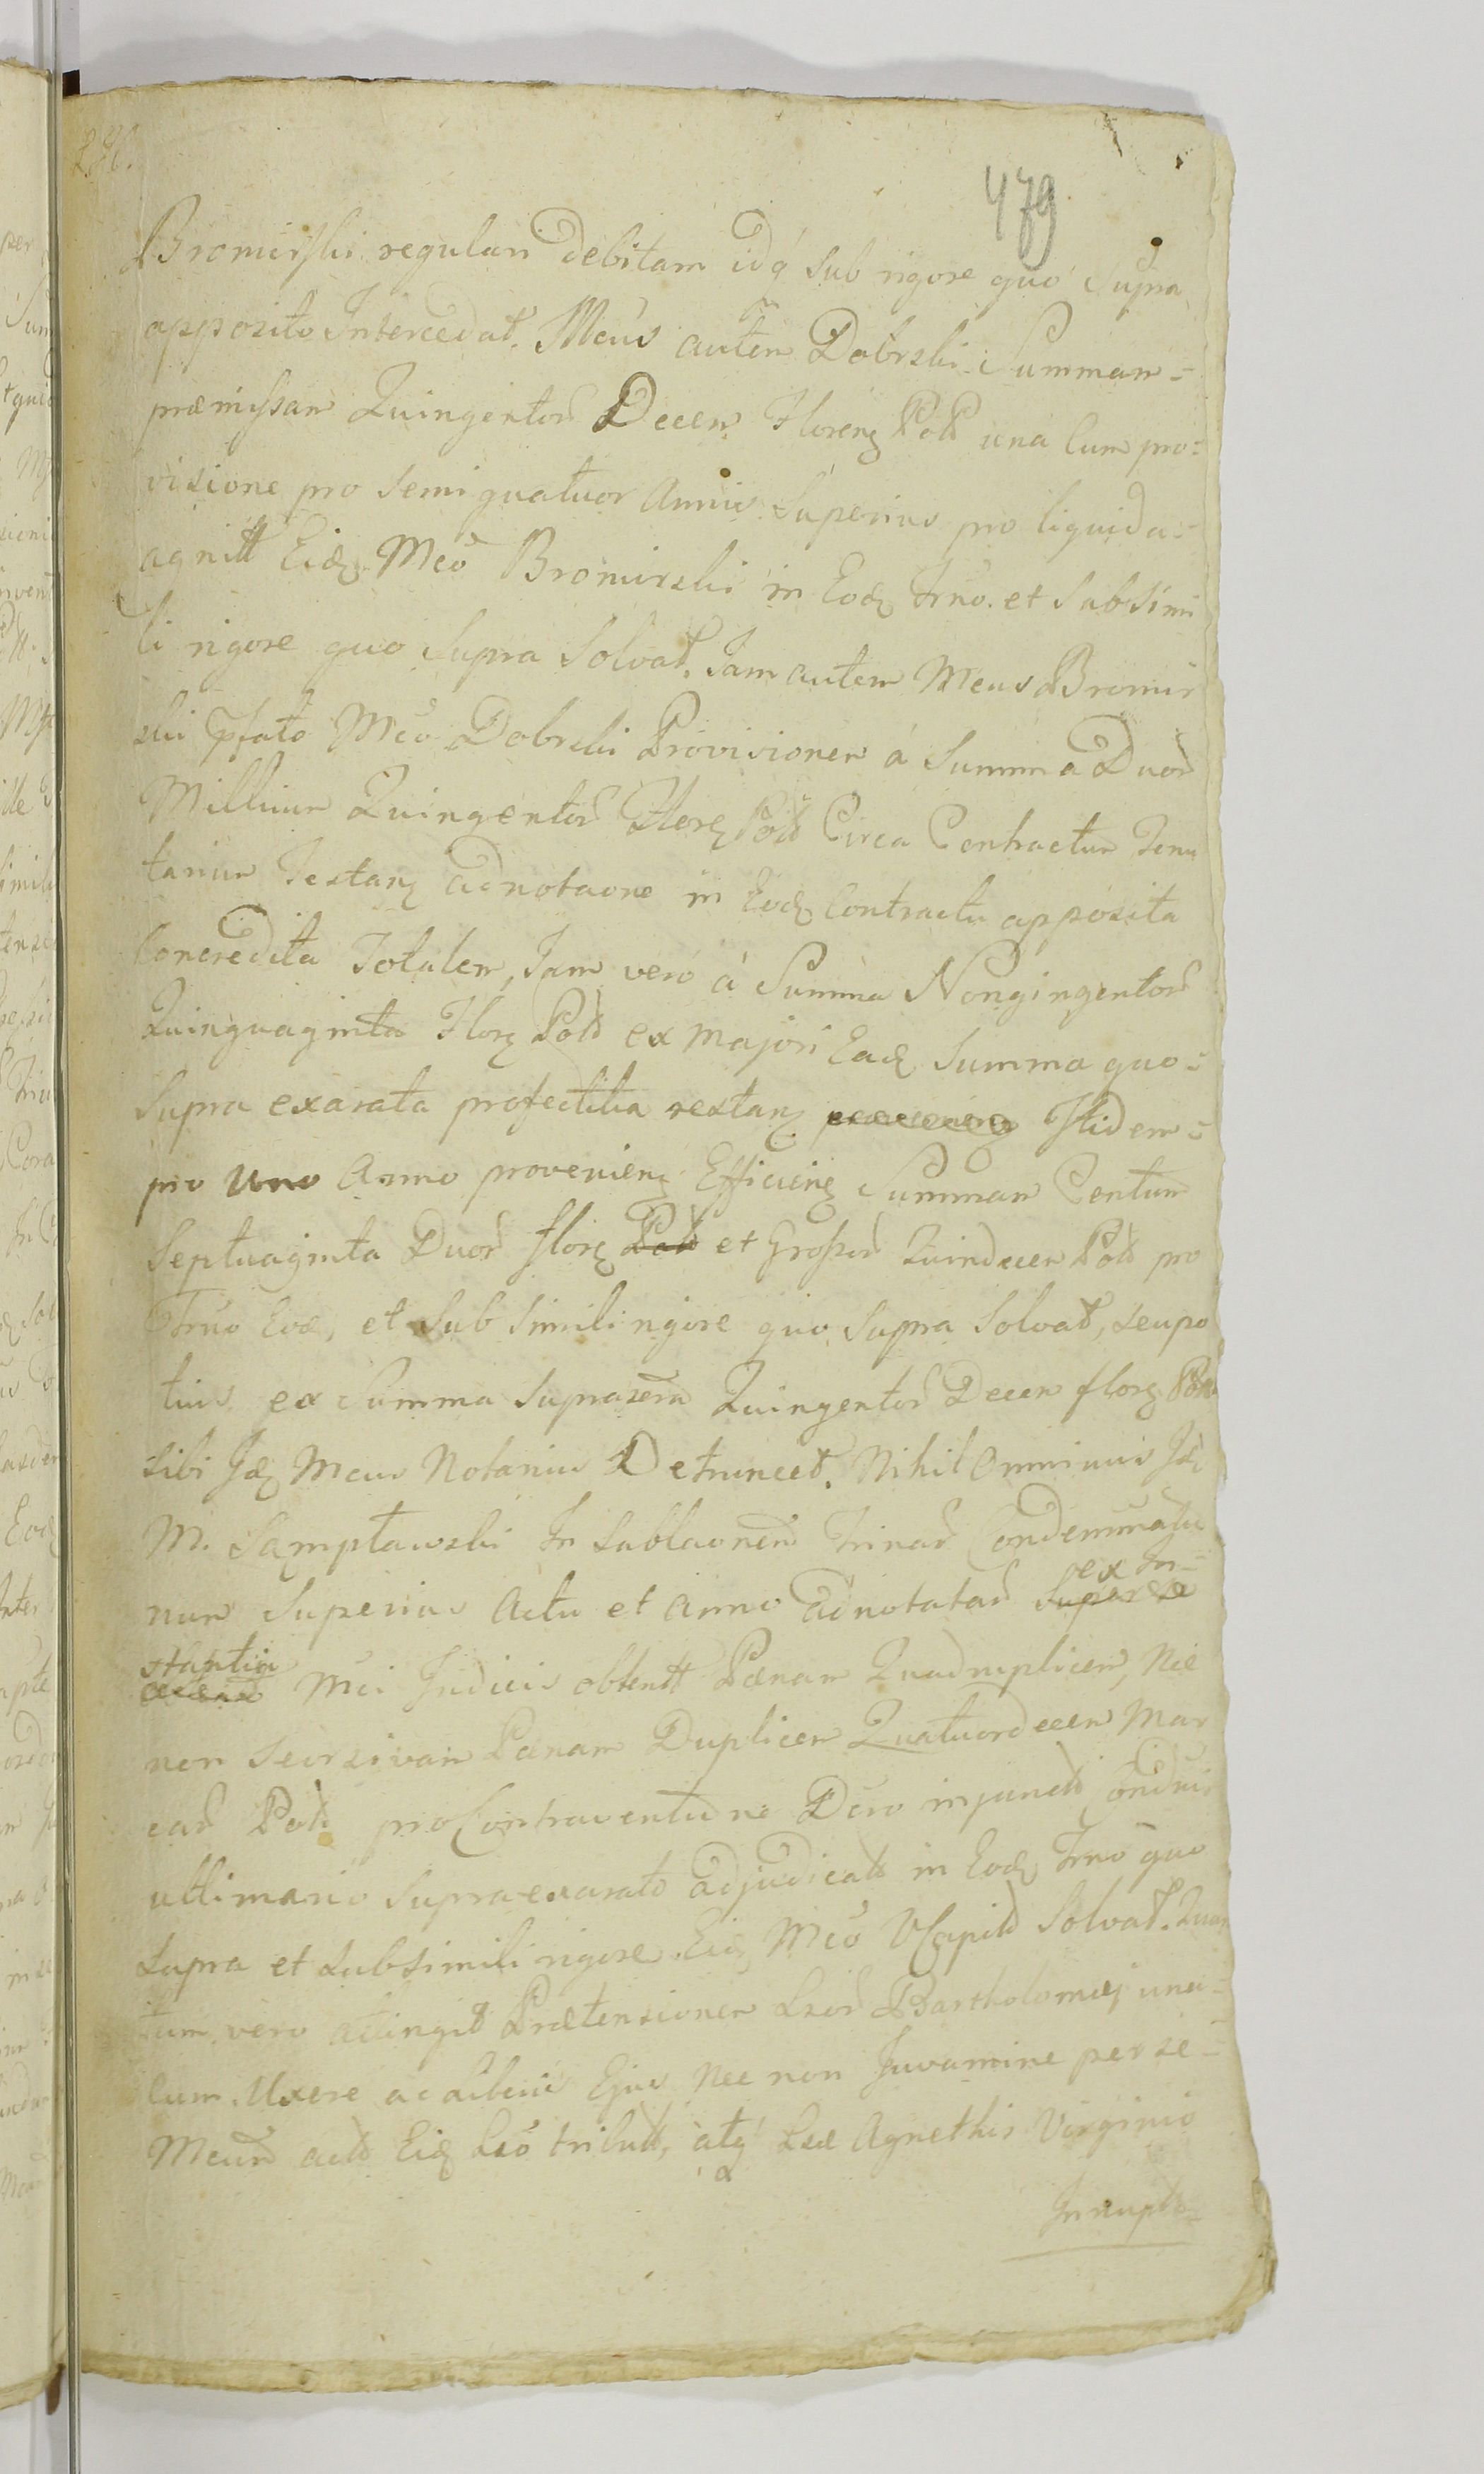 479
Bromirski regulari debitam idq́ sub rigore quo supra
apposito Intercedat. Meus autem Dobrski Summam=
præmissam Quingentor Decem Floren Pol una Cum pro=
visione pro semi quatuor Annis Superius pro liquida=
agnitt Eidę Mco Bromirski in Eodę Trno. et sub simi
li rigore quo supra Solvat. Jam autem Meus Bromir
ski pfato Mco Dobrski Provisionem á Summa Duor
Millium Quingentor Florę Pol Circa Contractum Tenu
tarium Testanę adnotaone in Eodę Contractu apposita
Concredita Totalem, Jam vero á Summa Nongingentor
Quinquaginta Florę Pol ex majori Eadę Summa quo=
supra exarata profectitia restanę Itidem=
pro Uno Anno provenienę Efficienę Summam Centum
Septuaginta Duor florę Pol et Grossor Quindecem Pol pro
Trno Eodę, et sub simili rigore quo supra Solvat, seu po
tius ex Summa suprascra Quingentor Decem florę Pol
sibi Idę Meus Notarius Detruncet. Nihil Ominus Idę
M. Sąmpławski In sublaonem Trinar Condemna
num Superius Actu et Anno adnotatar ex In=
stantia Mci Judicis obtentt Pænam Quadruplicem, Nec
non Seorsivam Pænam Duplicem Quatuordecem Mar
car Pol pro Contraventione Dcro injunctt
ultimario supraexarato adjudicatt in Eodę Trno quo
supra et sub simili rigore Eidę Mco VCapitt Solvat. Quan
tum vero attingit Prætensionem Lsor Bartholomæj una=
cum Uxore ac Liberis Ejus nec non Juvamine per se=
Meum actt Eidę Lso tributt, atq́ Lsæ Agnethis Virginis
Innupta=